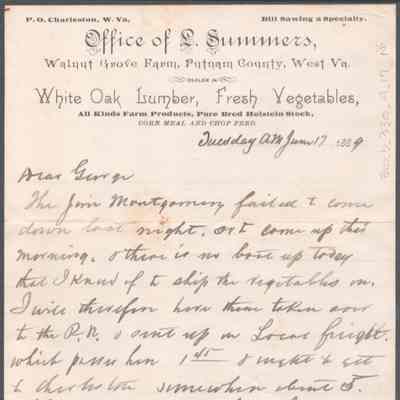 P. O. Charleston, W. Va. Bill Sawing a Specialty.
Office of L. Summers,
Walnut Grove Farm, Putnam County, West Va.
DEALER IN
White Oak Lumber, Fresh Vegetables,
All Kinds Farm Products, Pure Bred Holstein Stock,
CORN MEAL AND CHOP FEED.
Tuesday AM June 17 1889
Dear George
The Jim Montgomery failed to come
down last night, or to come up this
morning. & there is no boat up today
that I know of to ship the vegetables on.
I will therefore have them taken over
to the R.R. & sent up on Local freight.
which passes here 1 45 & ought to get
to Charleston somewhere about 5.